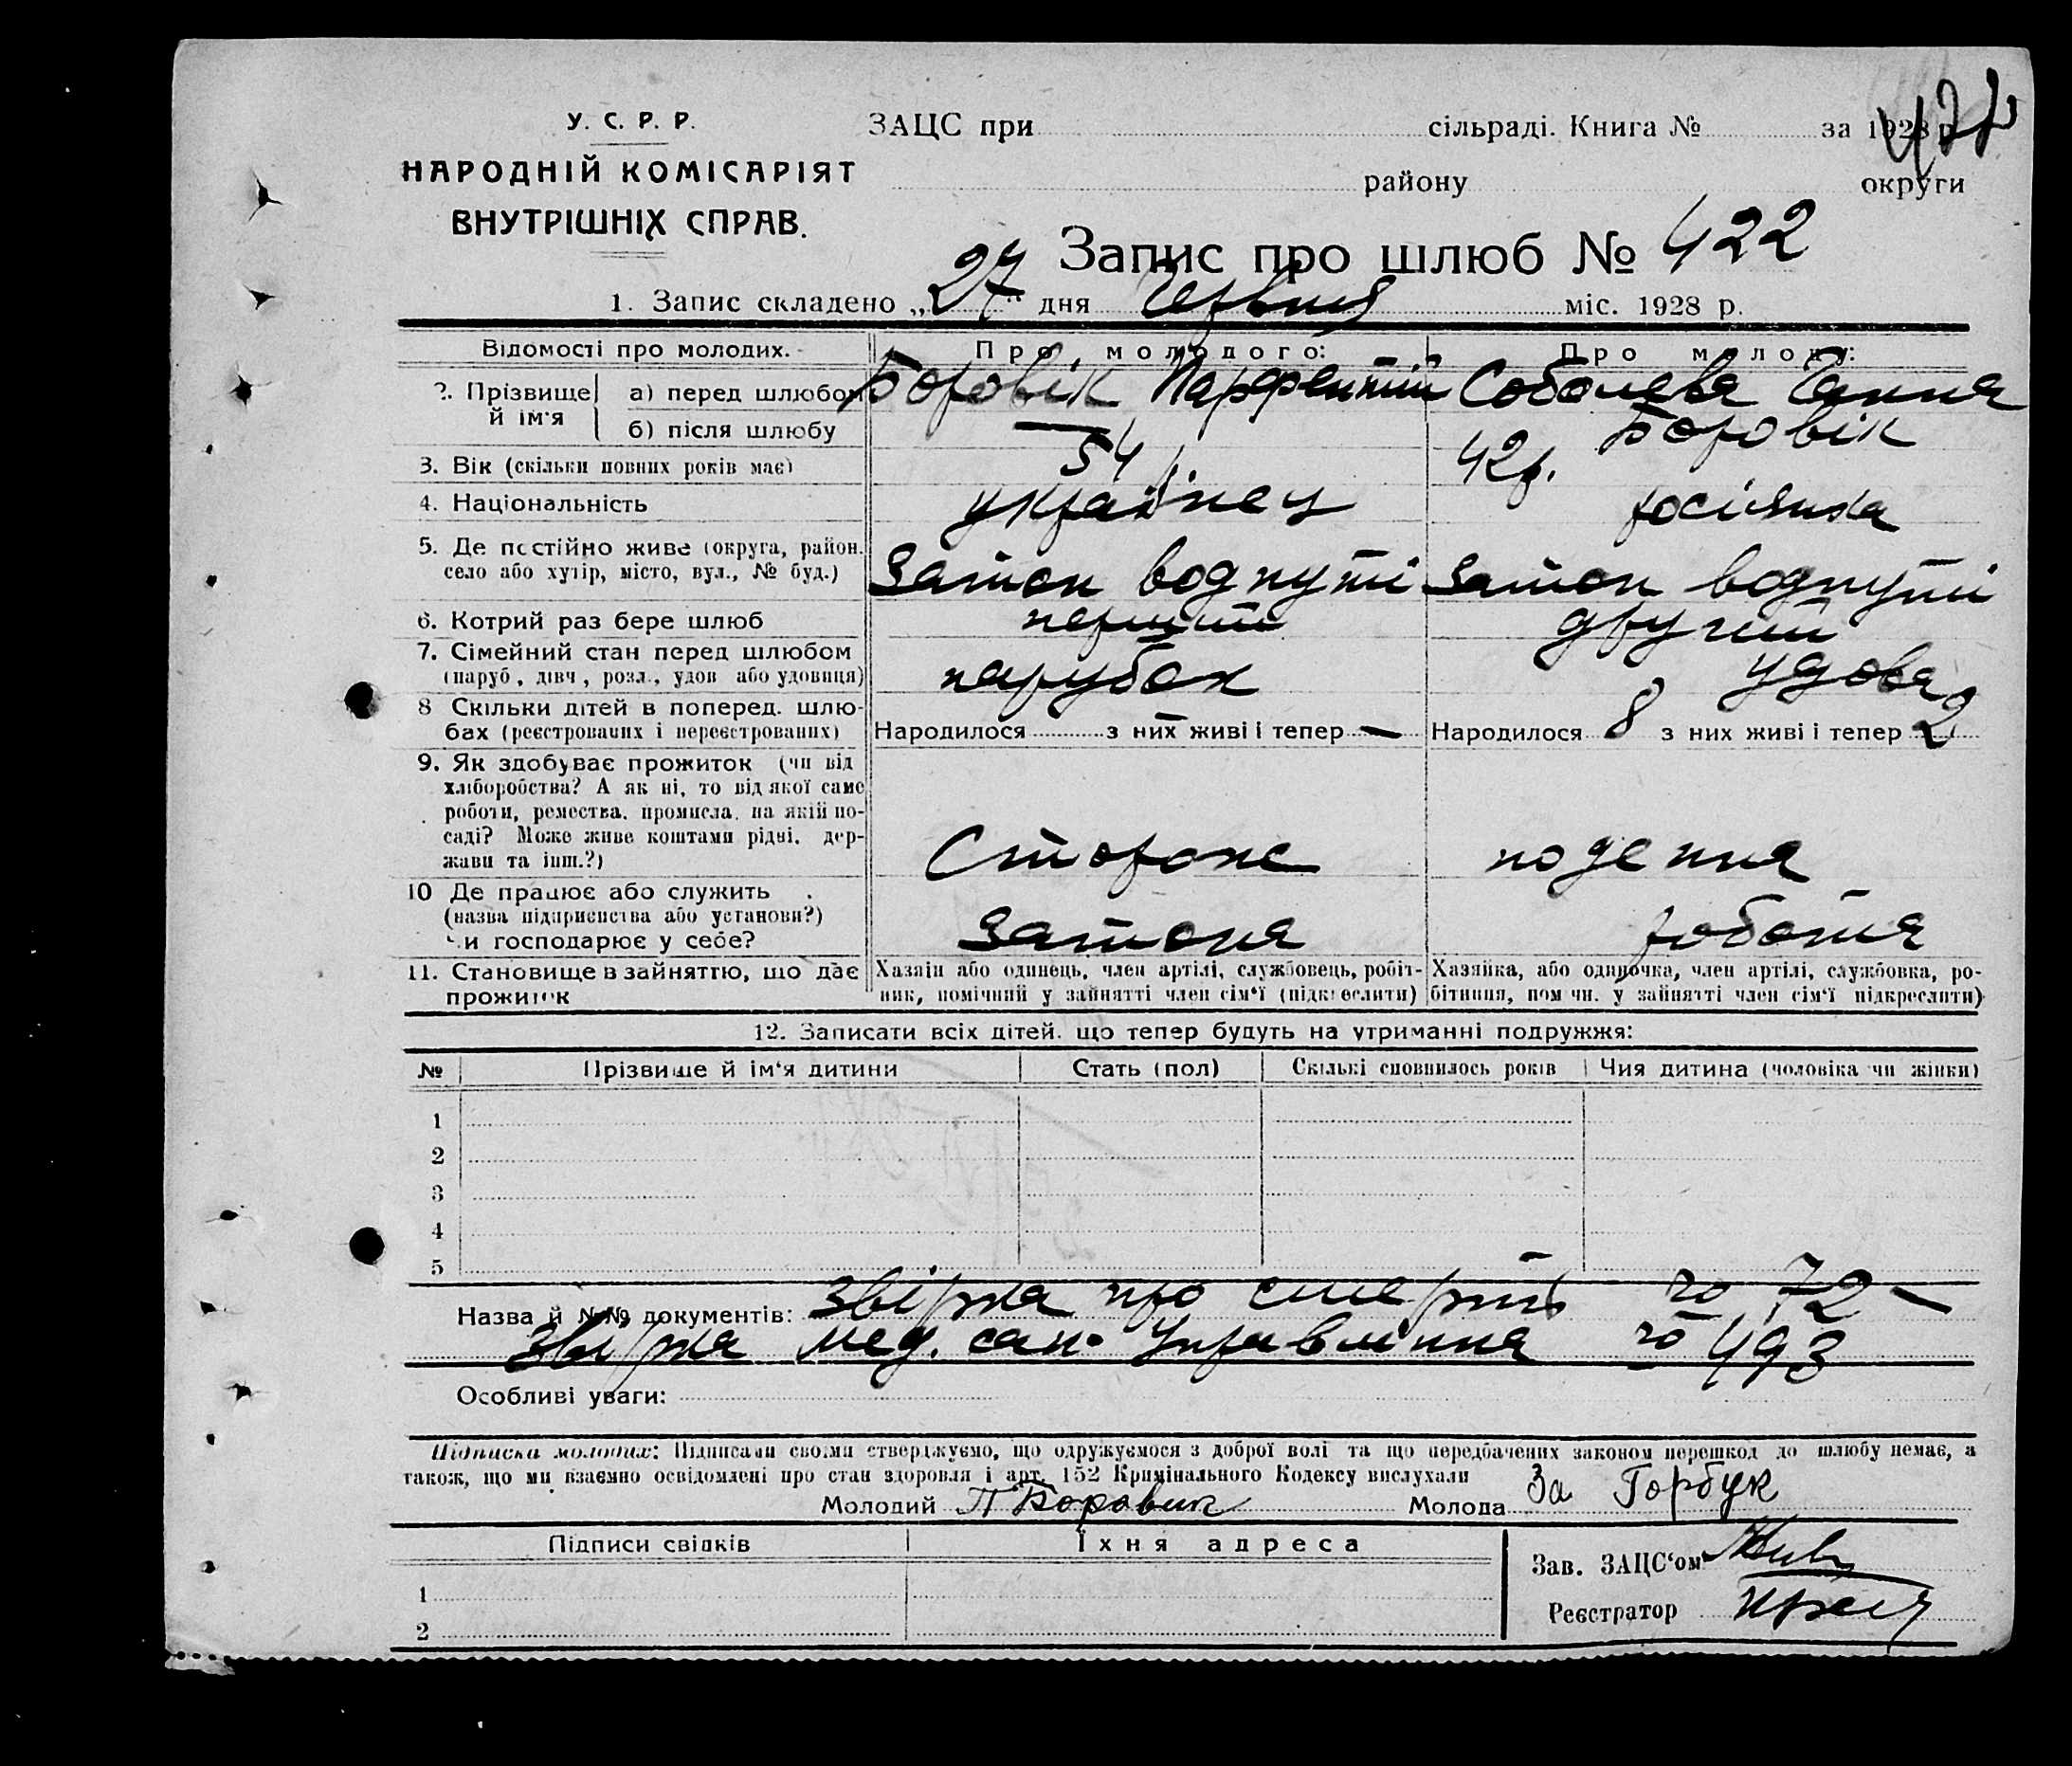 422
У. С. Р. Р.
НАРОДНІЙ КОМІСАРІЯТ
ВНУТРІШНІХ СПРАВ.
ЗАЦС при сільраді. Книга № за 1928 р.
району округи
Запис про шлюб № 422
1. Запис складено „27“ дня Червня міс. 1928 р.
Відомості про молодих. Про молодого: Про молоду:
2. Прізвище й ім'я а) перед шлюбом Боровік Парфентій Соболева Ганна
б) після шлюбу — Боровік
3. Вік (скільки повних років має) 54 р. 42 р.
4. Національність українец росіянка
5. Де постійно живе (округа, район, село або хутір, місто, вул., № буд.) Затон водпуті Затон водпуті
6. Котрий раз бере шлюб перший другий
7. Сімейний стан перед шлюбом (паруб., дівч., розл., удов або удовиця) парубок удова
8 Скільки дітей в поперед. шлюбах (реєстрованих і нереєстрованих) Народилося з них живі і тепер — Народилося 8 з них живі і тепер 2
9. Як здобуває прожиток (чи від хліборобства? А як ні, то від якої саме роботи, ремества, промисла, на якій посаді? Може живе коштами рідні, держави та інш.?) Стороже поденна
10 Де працює або служить (назва підприємства або установи?) Чи господарює у себе? Затона робота
11. Становище в зайняттю, що дає прожиток Хазяїн або одинець, член артілі, службовець, робітник, помічний у зайнятті член сім'ї (підкреслити) Хазяйка, або одиночка, член артілі, службовка, робітниця, помічн. у зайнятті член сім'ї підкреслити)
12. Записати всіх дітей, що тепер будуть на утриманні подружжя:
№ Прізвище й ім'я дитини Стать (пол) Скількі сповнилось років Чия дитина (чоловіка чи жінки)
1
2
3
4
5
Назва й №№ документів: Звірка про смерть № 72 —
Звірка мед. сан. Управління № 493
Особливі уваги:
Підписка молодих: Підписами своїми стверджуємо, що одружуємося з доброї волі та що передбачених законом перешкод до шлюбу немає, а
також, що ми взаємно освідомлені про стан здоровля і арт. 152 Кримінального Кодексу вислухали
Молодий П Боровик Молода За Горбук
Підписи свідків Їхня адреса
Зав. ЗАЦС'ом
1
Реєстратор
2